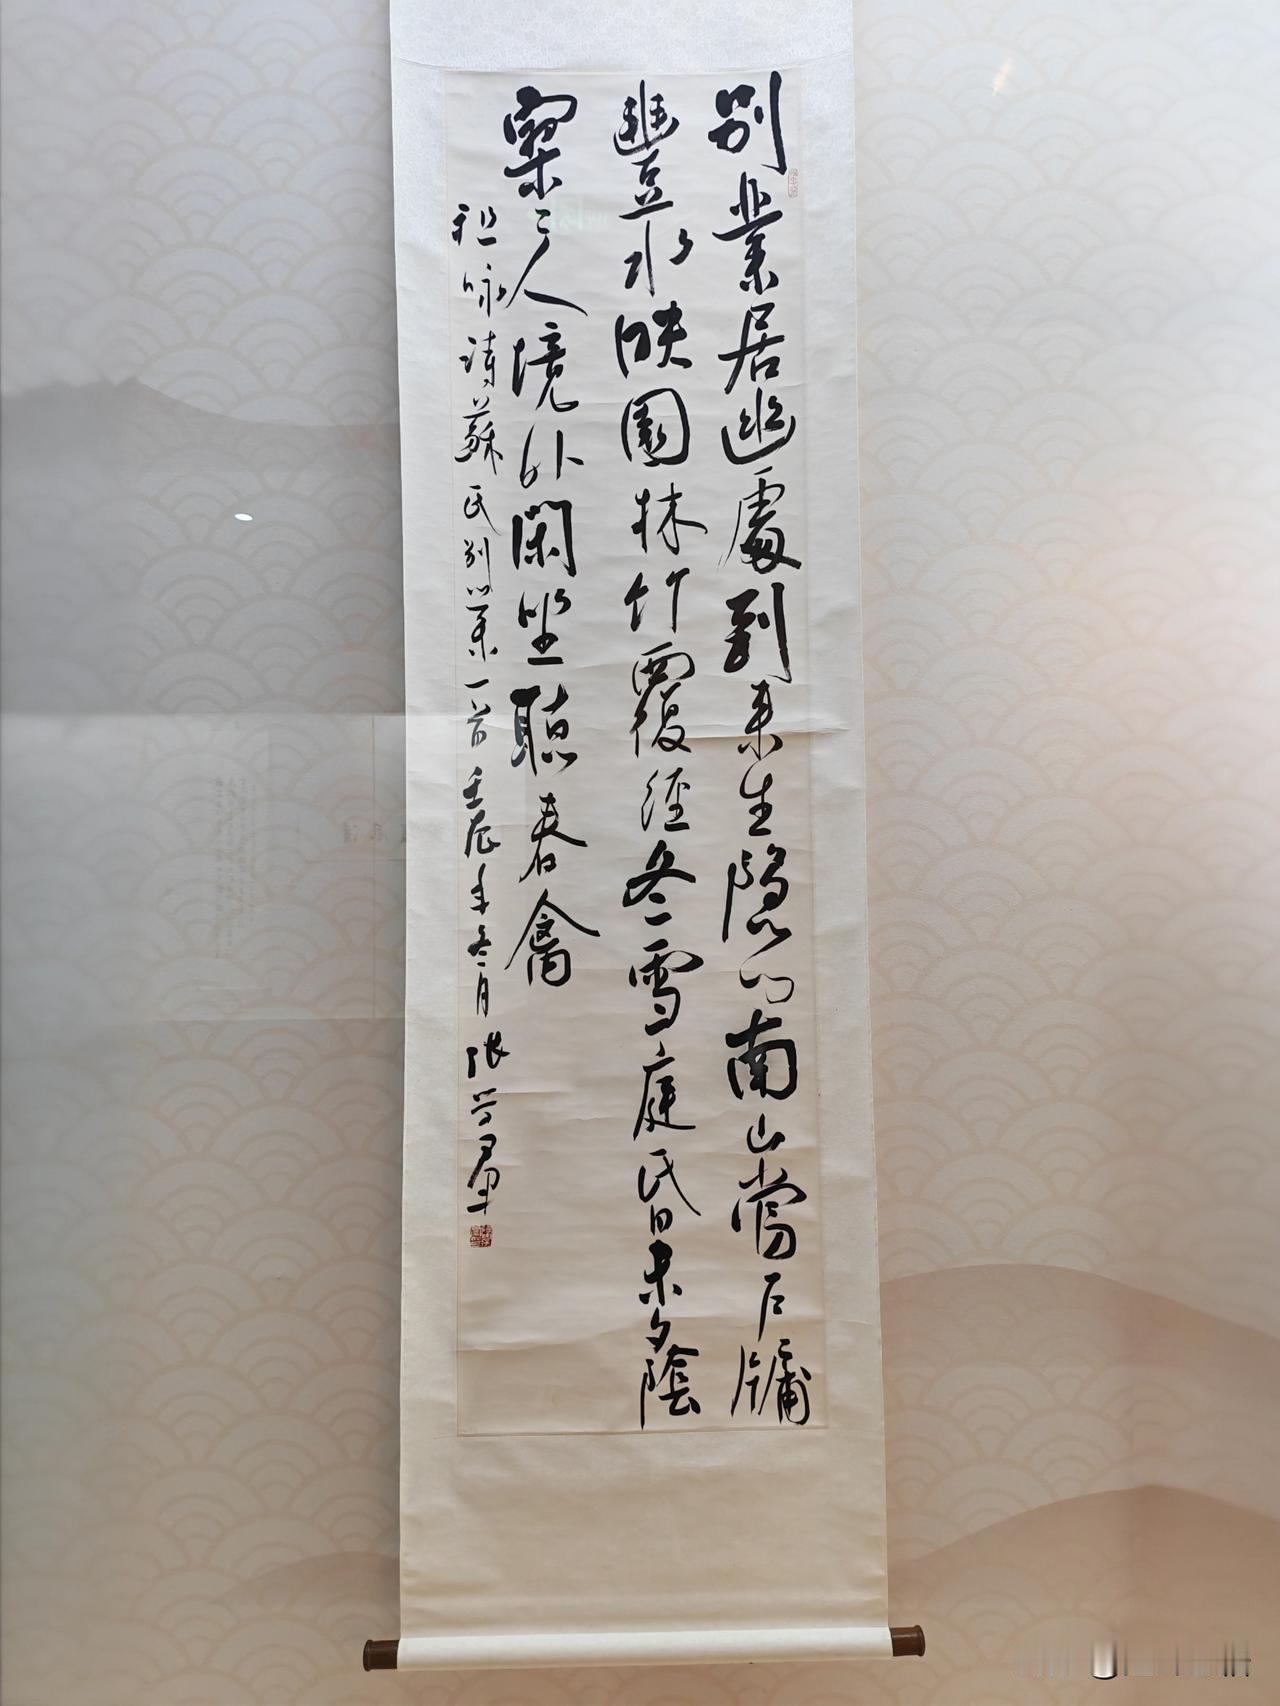 别業居幽處到来生隐心南山當户牖
豐水映園林竹覆經冬雪庭昏未夕陰
寥〻人境外閑坐聽春禽
祖咏诗蘇氏别業一首壬辰年冬月張